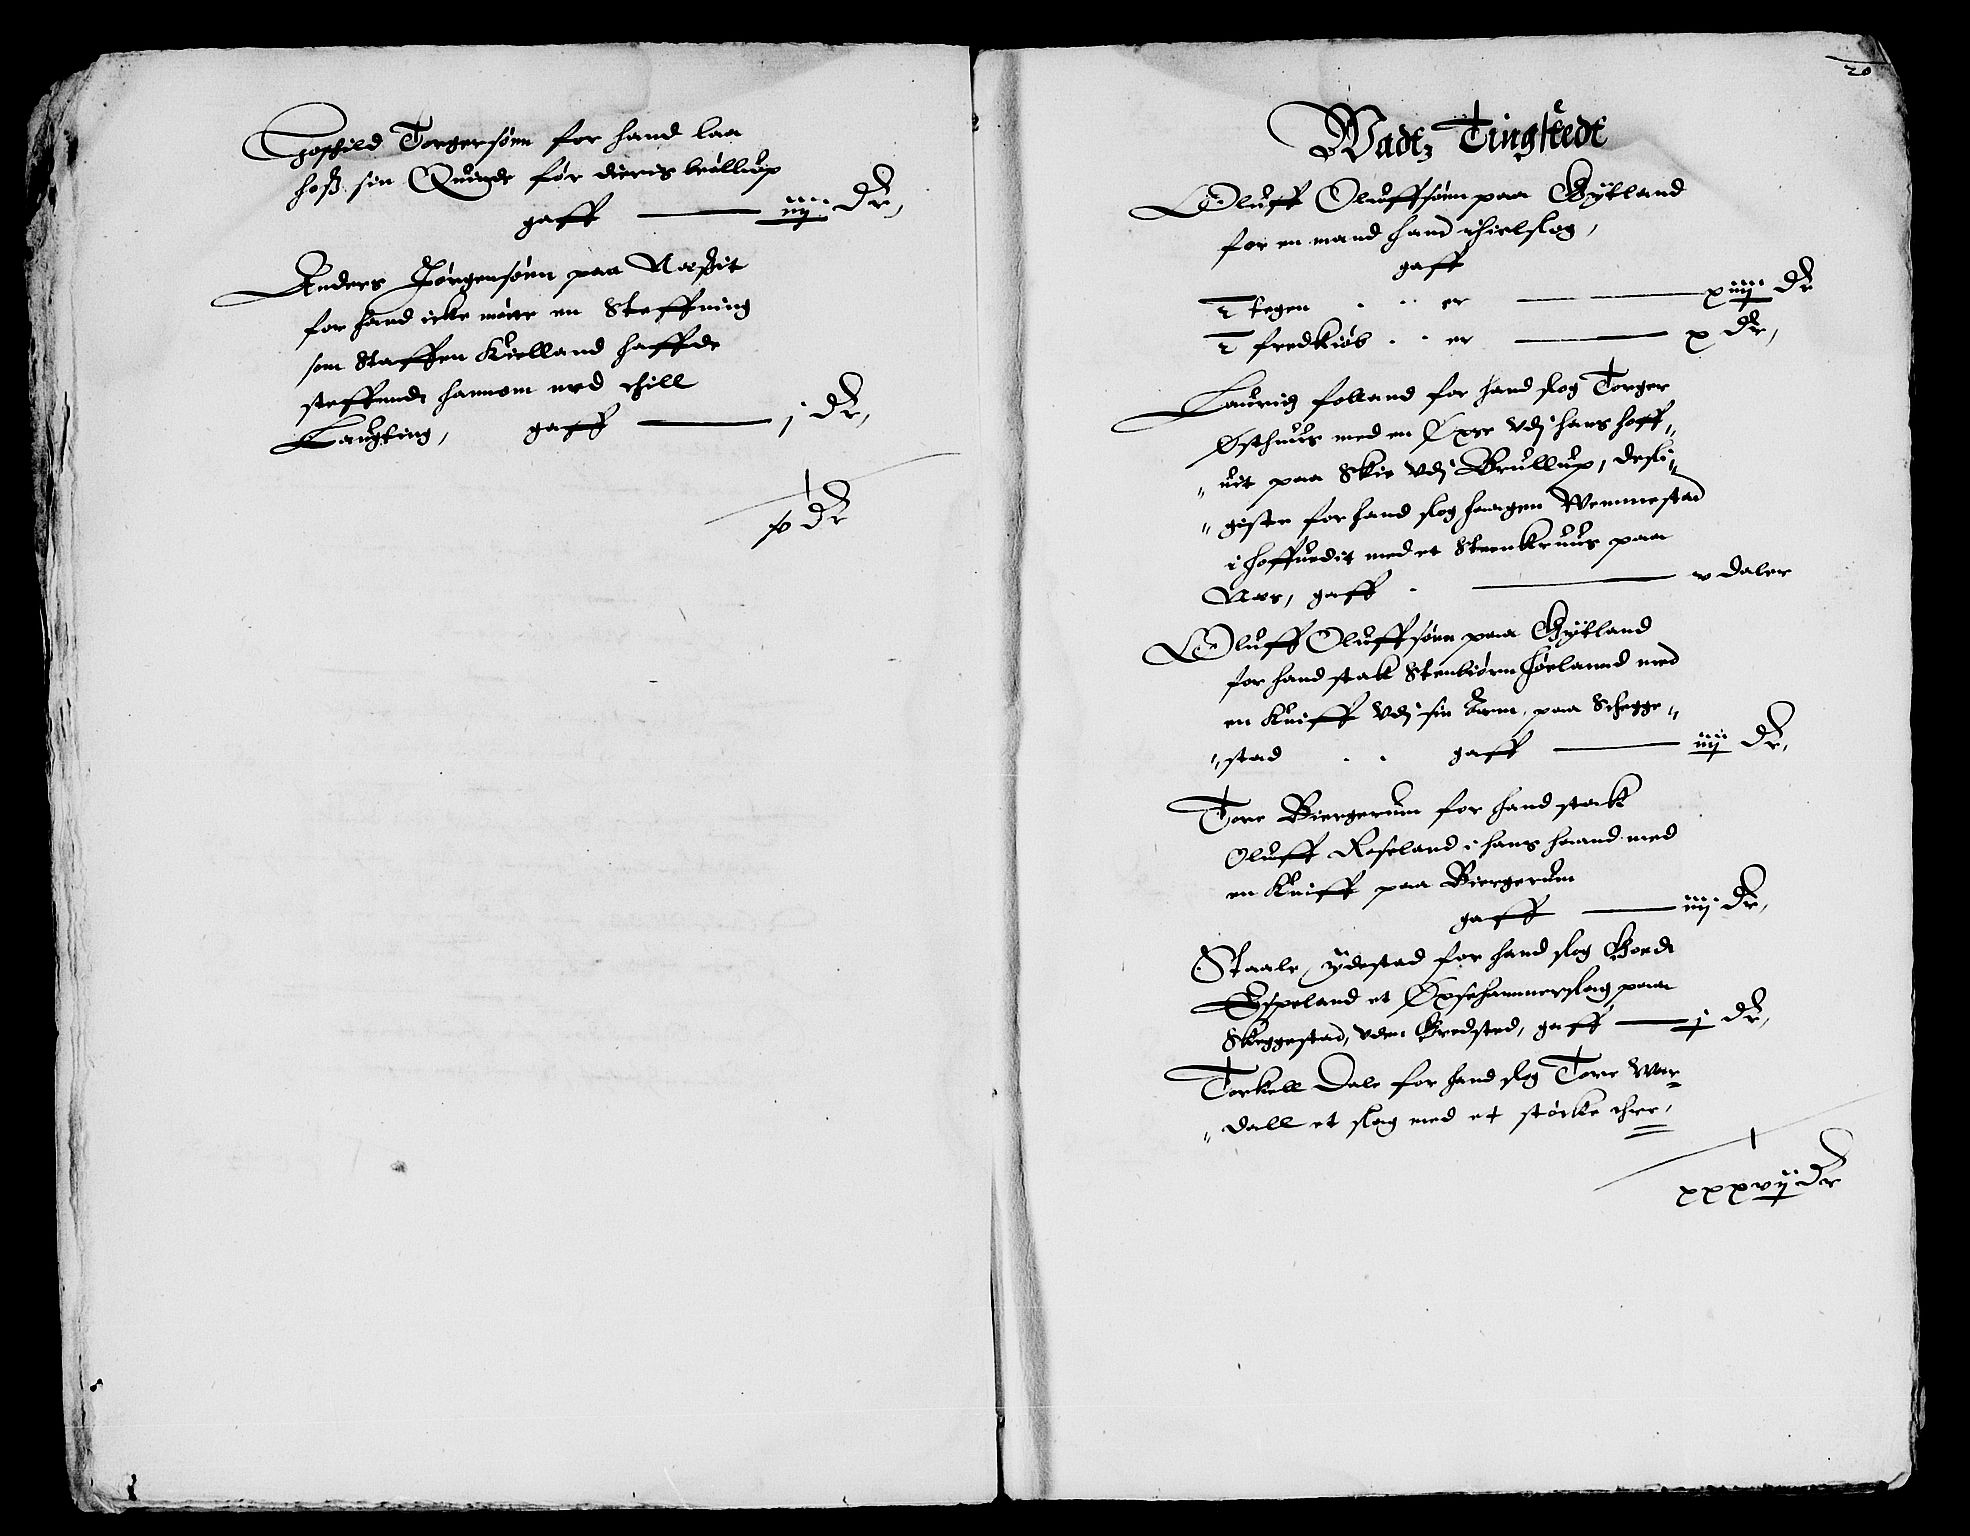 Torgersønn for hand laa
hoß sin Quinde før dieris brøllup
gaff — iiij Dr,
Anders Jørgensønn paa
for hand icke møtte en Steffning
som Staffen Kielland haffde
steffnudt hannom med thill
Laugting, gaff — j Dr,
Dr
20
Wadtz Tingstedt
Oluff Oluffsønn paa Gytland
for en mand hand ihielslog,
gaff
I tegen . . er — xiiij Dr
I fredkiøb . . er — x Dr,
Lauridz folland for hand slog Torger
Østhuus med en Øxe vdj hans hoff„
„uit paa Skie vdj Brullup, desli„
„giste for hand slog haagen Wemmestad
i hoffuedit med et Steenkruus paa
Næs, gaff . — v daler
Oluff Oluffsønn paa Gytland
for hand stack Stenbiørn Høelannd med
en Kniff vdj sin Larm, paa Schegge„
„stad . . gaff — iiij Dr,
Tore Biergerum for hand stack
Oluff Roseland i hans haand med
en Kniff paa Biergerum
gaff — iiij Dr,
Staale ydestad for hand slog Gordt
Espeland et Øxsehammerslag paa
Skeggestad, vden Bredsted, gaff — j Dr,
Torkell Dale for hand slog Tore War
„dall et slag med et støcke thre,
xxxvij Dr